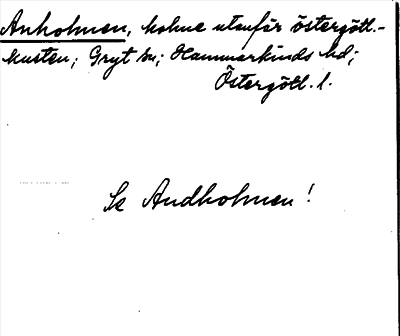 Anholmen, holme utanför östergötl.-
kusten; Gryt sn; Hammarkinds hd;
Östergötl. l.
Se Andholmen!